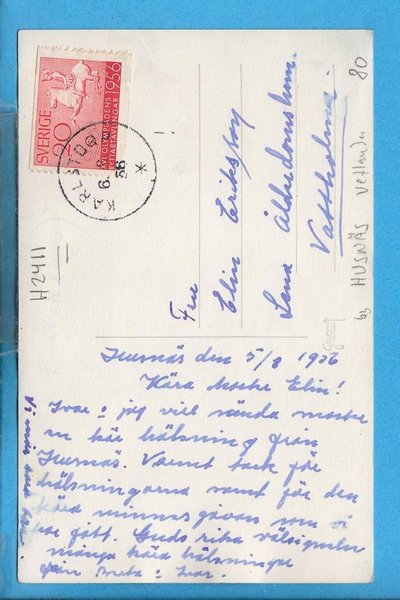 SVERIGE
20
XVI OLYMPIADENS
RYTTARTÄVLINGAR 1956
KARLSTORP
6. 8
56
H2411
80
by HUSNÄS Vetlanda
Fru
Elin Eriksson
Lena Ålderdomshem
Vattholma
Husnäs den 5/8 1956
Kära Moster Elin!
Ivar o jag vill sända moster
en kär hälsning från
Husnäs. Varmt tack för
hälsningarna samt för den
kära minnesgåvan som vi
har fått. Guds rika välsignelse
många kära hälsningar
från Greta o Ivar.
Vi